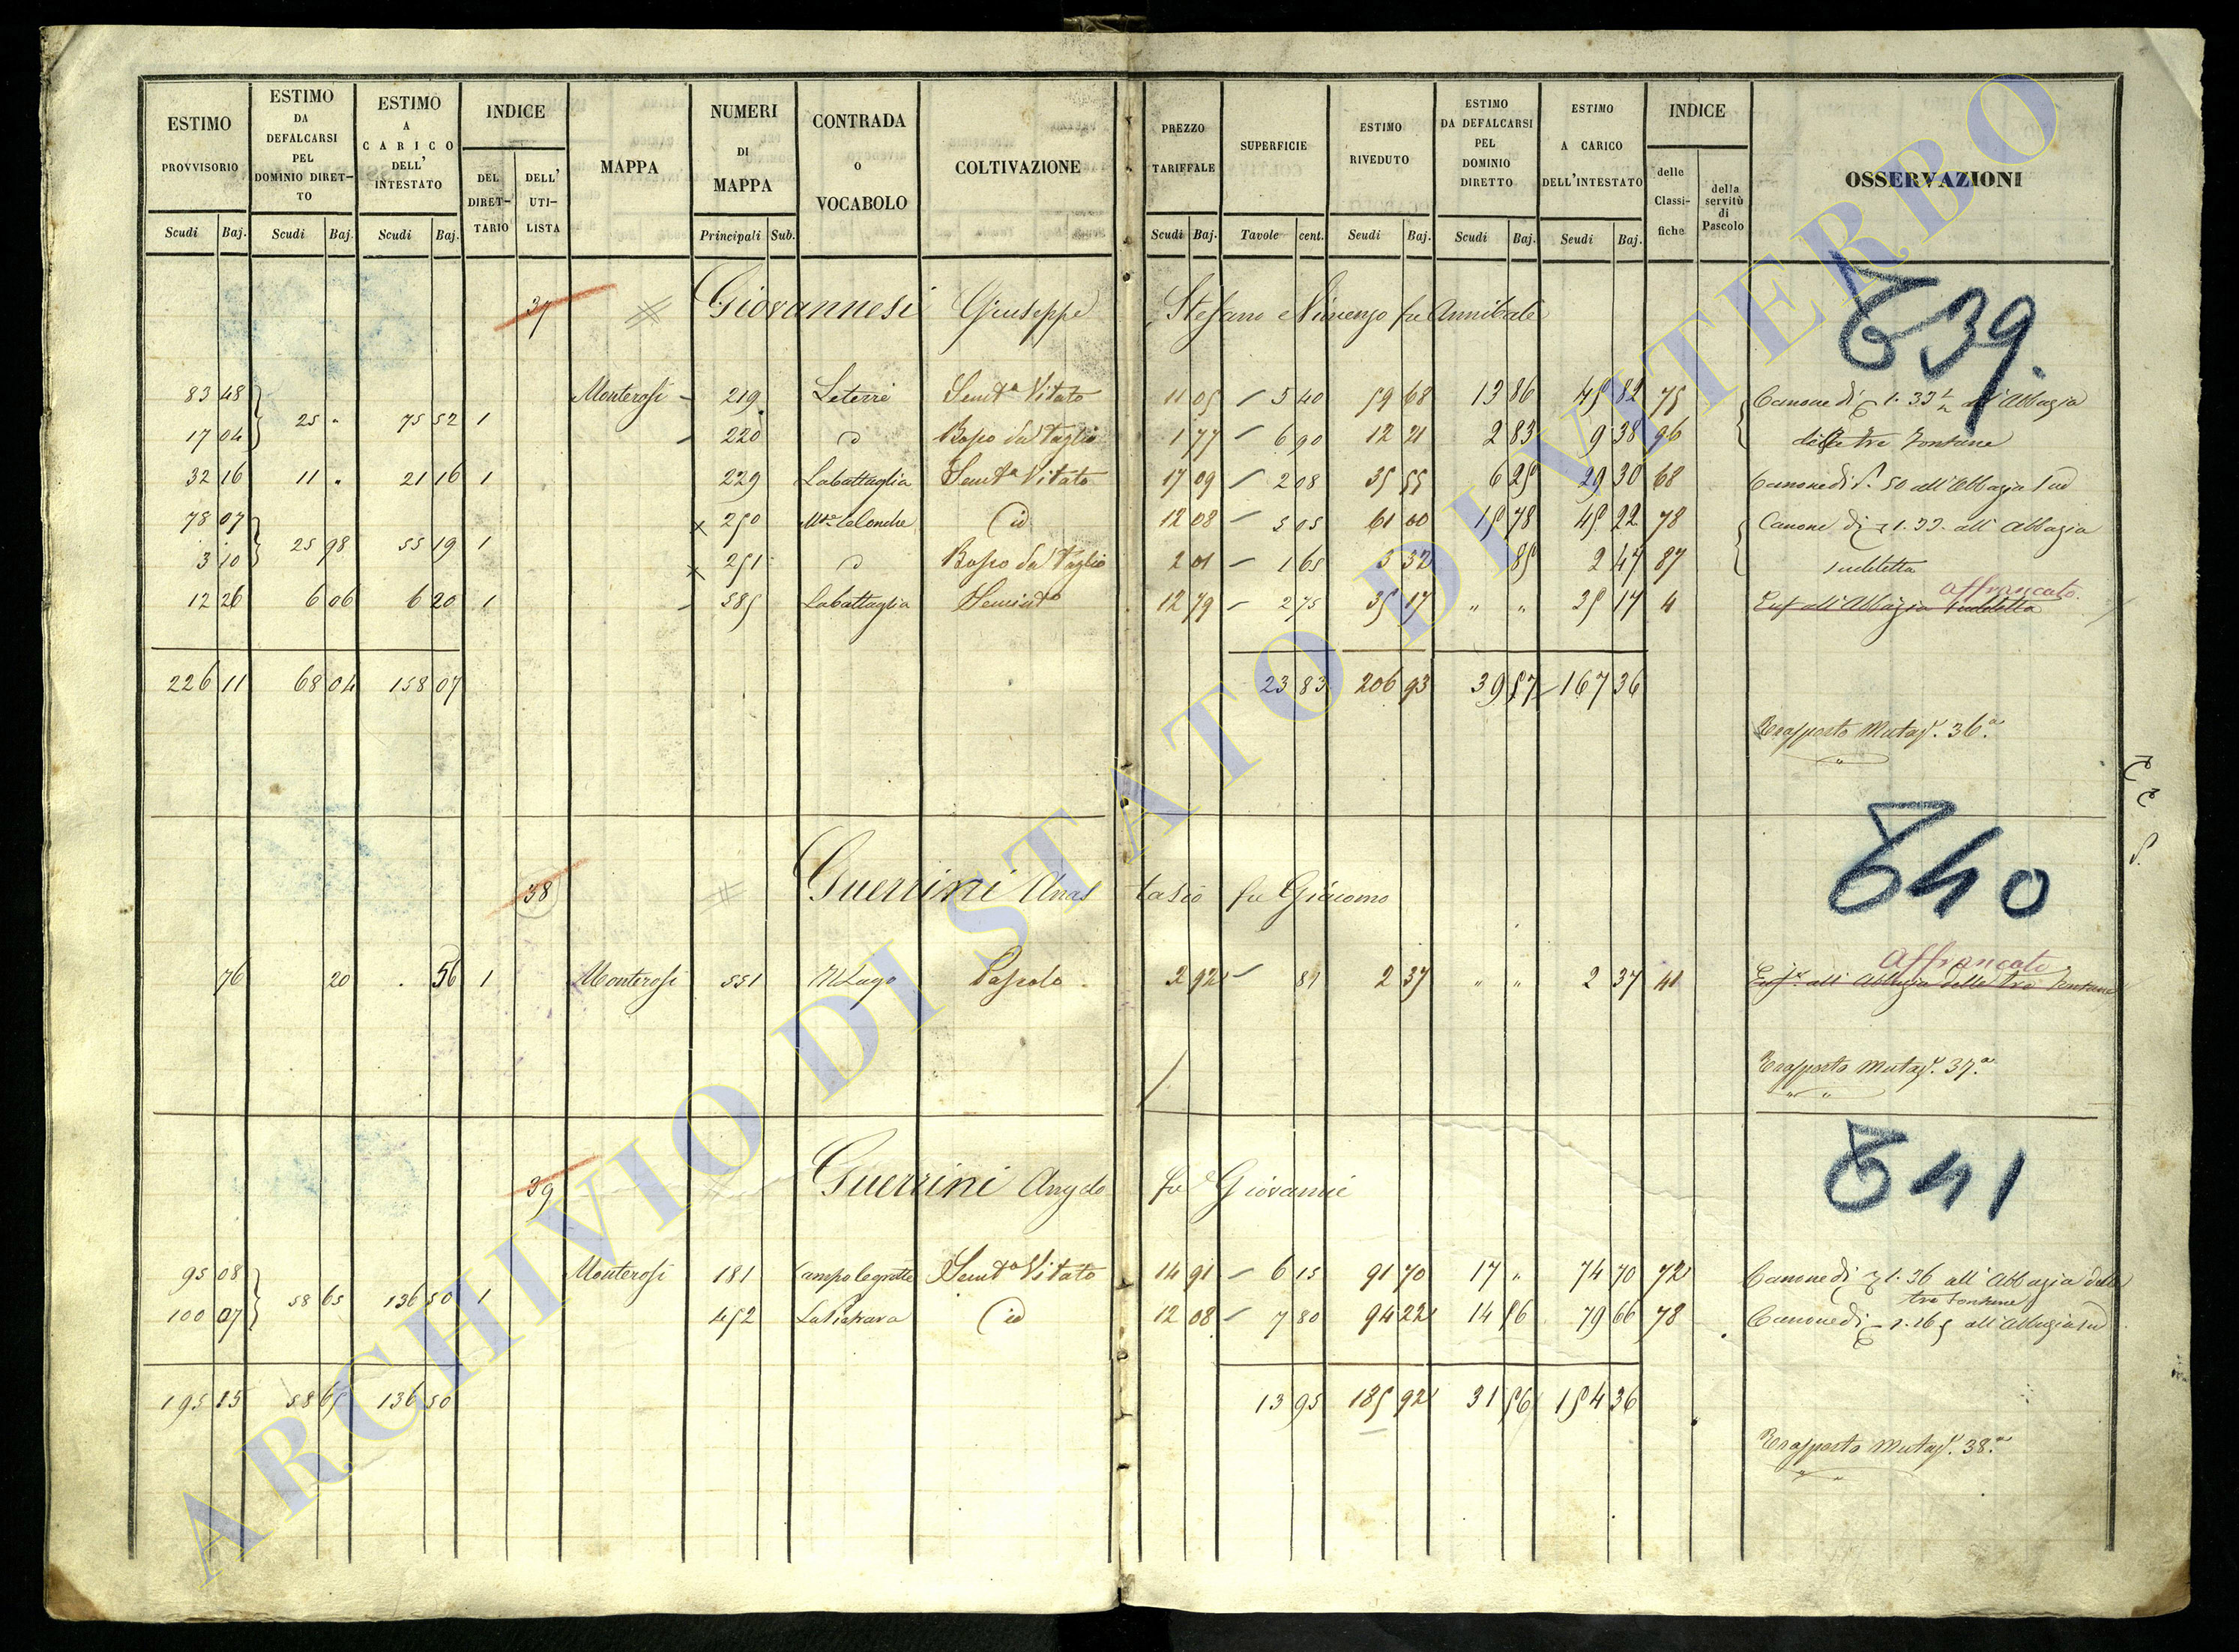 ESTIMO PROVVISORIO
ESTIMO DA DEFALCARSI PEL DOMINIO DIRET- TO
ESTIMO A CARICO DELL' INTESTATO
INDICE
DEL DIRET- TARIO
DELL' UTI- LISTA
MAPPA
NUMERI DI MAPPA
CONTRADA o VOCABOLO
COLTIVAZIONE
PREZZO TARIFFALE
SUPERFICIE
ESTIMO RIVEDUTO
ESTIMO DA DEFALCARSI PEL DOMINIO DIRETTO
ESTIMO A CARICO DELL'INTESTATO
INDICE
delle Classi- fiche
della servitù di Pascolo
OSSERVAZIONI
Scudi Baj. Scudi Baj. Scudi Baj. Principali Sub. Scudi Baj. Tavole cent. Scudi Baj. Scudi Baj. Scudi Baj.
37 Giovannesi Giuseppe Stefano e Vincenzo fu Annibale
639.
83 48 Monterosi 219 Leterre Semto Vitato 11 05 5 40 59 68 13 86 45 82 75 Canone di 1. 33 all'Abbazia
25 " 75 52 1
17 04 220 Bosco da Taglio 1 77 6 90 12 21 2 83 9 38 96 delle tre Fontane
32 16 11 " 21 16 1 229 Labattaglia Semta Vitato 17 09 2 08 35 55 6 25 29 30 68 Canone di 50 all'Abbazia sud
78 07 x 250 id 12 08 5 05 61 00 15 78 45 22 78 Canone di 1. 33. all' Abbazia
25 98 55 19 1
3 10 x 251 Bosco da Taglio 2 01 1 65 3 32 85 2 47 87 suddetta
affrancato.
12 26 6 06 6 20 1 585 Labattaglia Semint 12 79 2 75 35 17 " " 35 17 4 Enf all'Abbazia suddetta
226 11 68 04 158 07 23 83 206 93 39 57 167 36
Trasporto Mutaz. 36.a
38 Guerrini Anastasio fu Giacomo
640
Affrancato
76 20 . 56 1 Monterosi 551 Il Lago Pascolo 2 92 81 2 37 " " 2 37 41 Enf. all' Abbazia delle tre Fontane
Trasporto Mutaz. 37.a
39 Guerrini Angelo fu Giovanni
641
95 08 Monterosi 181 Campo legrotte Semta Vitato 14 91 6 15 91 70 17 " 74 70 72 Canone di 1. 36 all' Abbazia delle
58 65 136 50 1 tre Fontane
100 07 452 id 12 08 7 80 94 22 14 56 79 66 78 Canone di 1. 16 5 all'Abbazia sud
195 15 58 65 136 50 13 95 185 92 31 56 154 36
Trasporto Mutaz. 38.a
ARCHIVIO DI STATO DI VITERBO